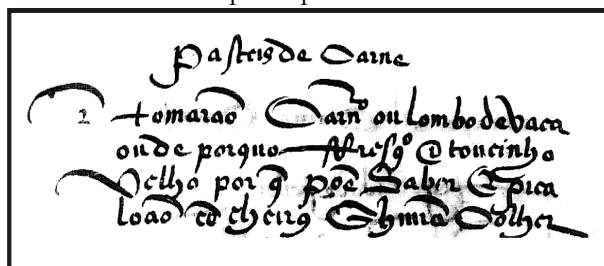 pasteis de Carne
2 tomarão Carnro ou lombo de vaca
ou de porquo ffresqo e toucinho
velho por q̃ põe Sabor E pica
loão cõ cheirꝯ E hũa Colher